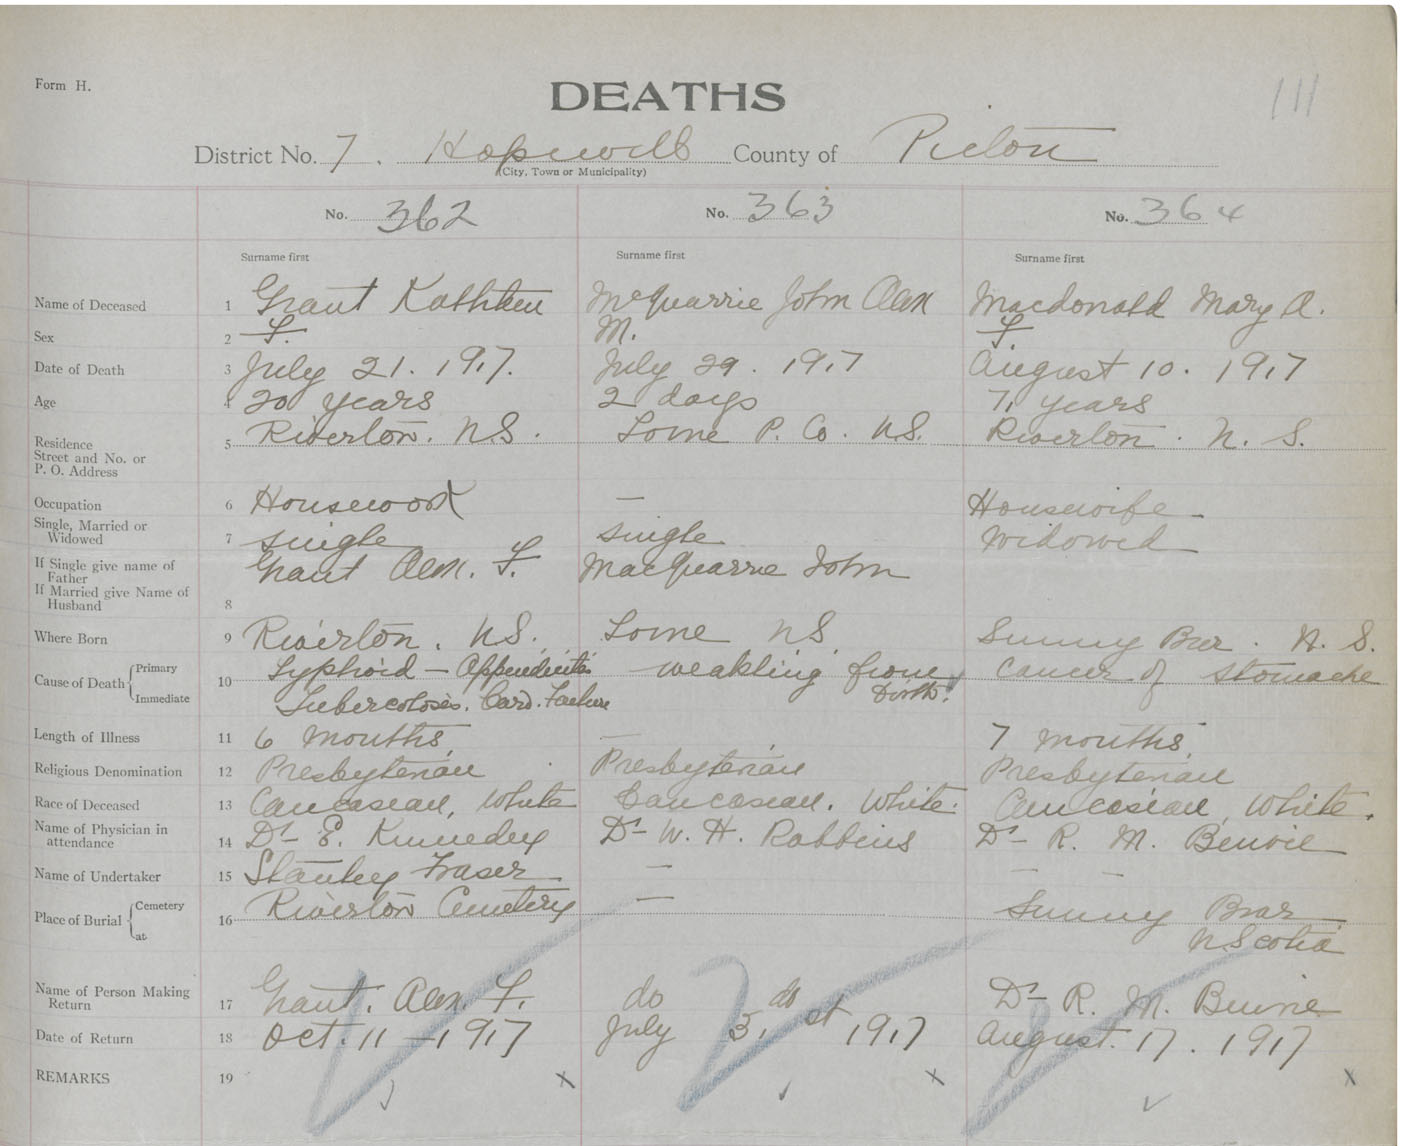 Form H.
DEATHS
111
District No. 7. Hopewell County of Pictou
(City, Town or Municipality)
No. 362 No. 363 No. 364
Surname first Surname first Surname first
Name of Deceased 1 Grant Kathleen McQuarrie John Alex Macdonald Mary A.
Sex 2 F. M. F.
Date of Death 3 July 21. 1917. July 29. 1917 August 10. 1917
Age 4 20 years 2 days 71 years
Residence 5 Riverton. N.S. Lorne P. Co. N.S. Riverton. N. S.
Street and No. or
P. O. Address
Occupation 6 Housework — Housewife
Single, Married or
Widowed 7 single single Widowed
If Single give name of
Father Grant Alex. F. MacQuarrie John
If Married give Name of
Husband 8
Where Born 9 Riverton. N.S. Lorne NS Sunny Brae. N. S.
Cause of Death Primary 10 Typhoid — Appendicitis weakling from Cancer of Stomache
Immediate Tubercolosis. Card. Failure birth.
Length of Illness 11 6 months — 7 months
Religious Denomination 12 Presbyterian Presbyterian Presbyterian
Race of Deceased 13 Caucasean, White Caucasean. White. Caucasean, White.
Name of Physician in
attendance 14 Dr E. Kennedy Dr W. H. Robbins Dr R. M. Benvie
Name of Undertaker 15 Stanley Fraser — — —
Place of Burial Cemetery 16 Riverton Cemetery — Sunny Brae
at N Scotia
Name of Person Making
Return 17 Grant. Alex F. do do Dr R. M. Benvie
Date of Return 18 Oct. 11 — 1917 July 31st 1917 August. 17. 1917
REMARKS 19 x x x